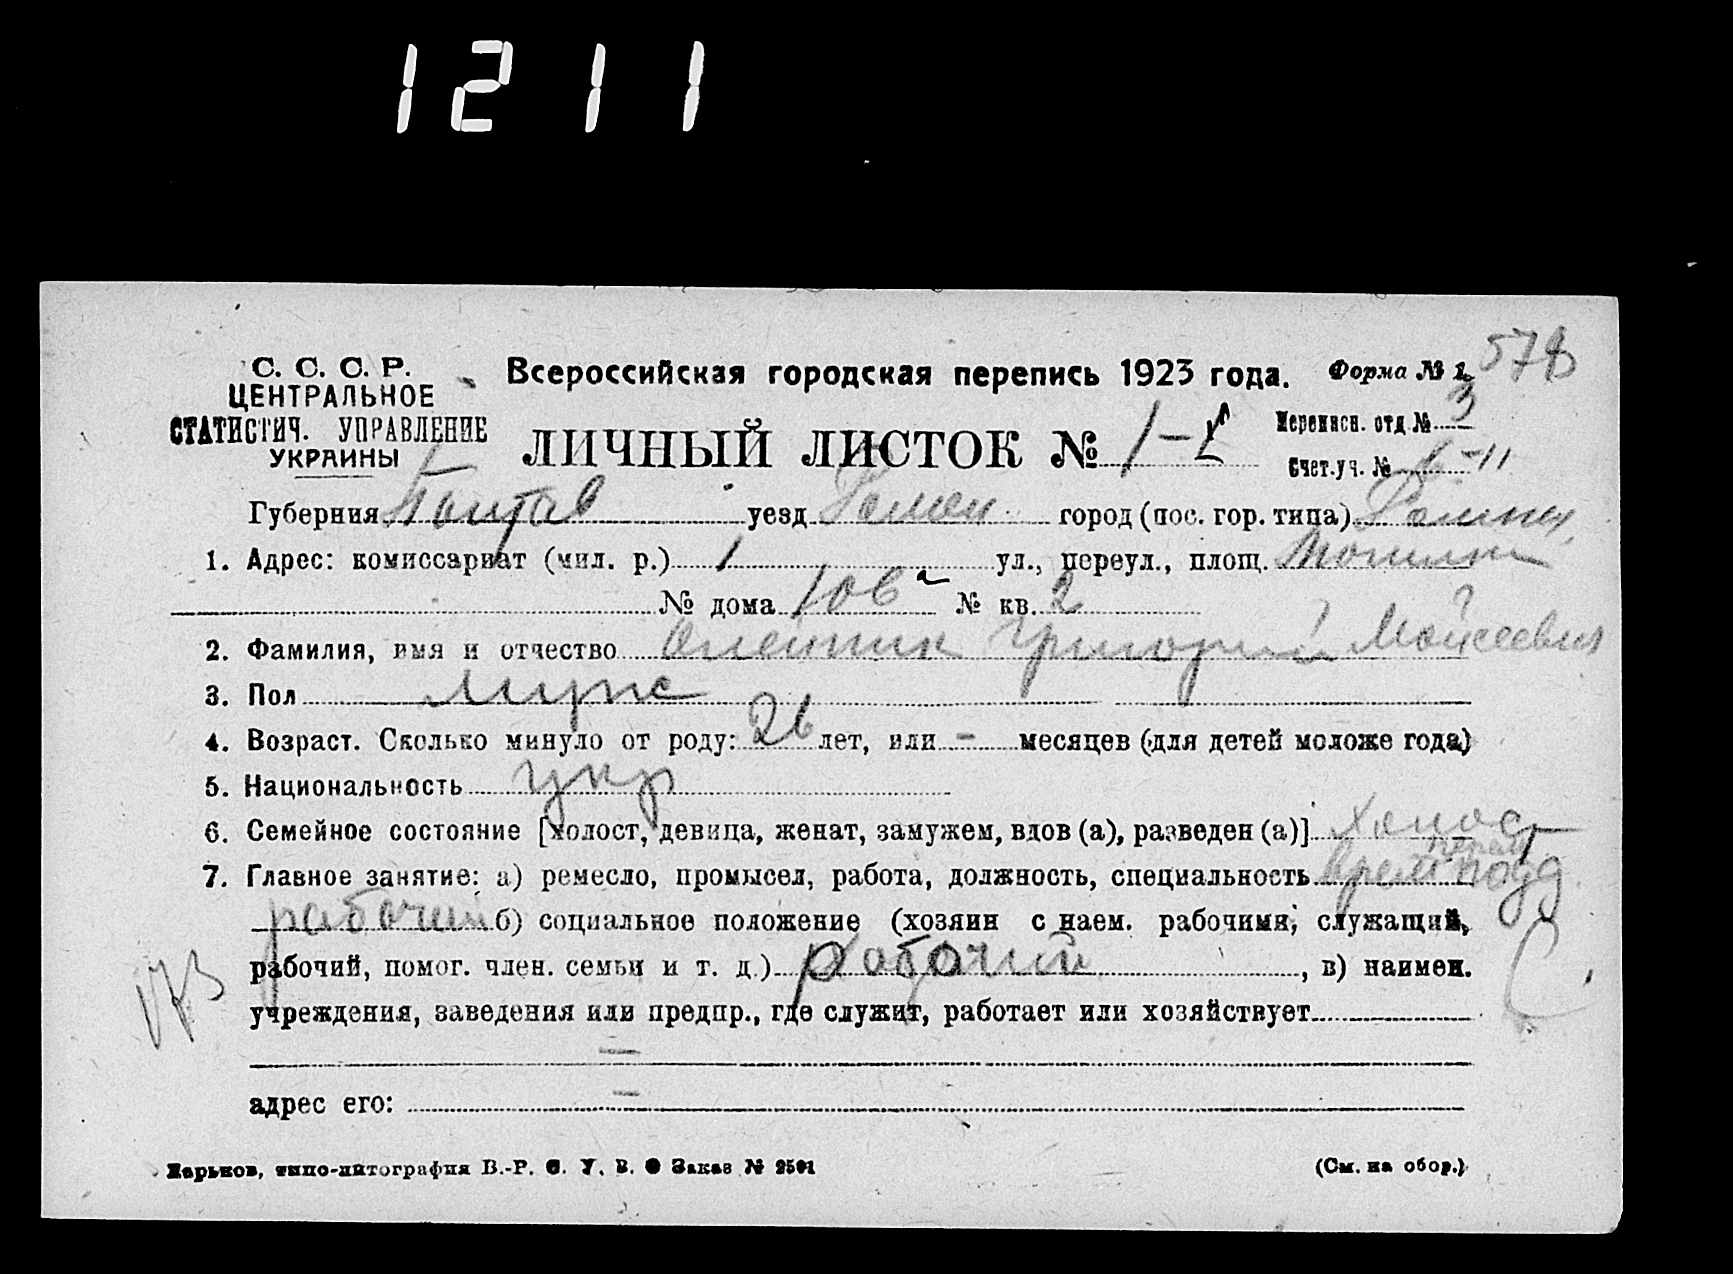 1211
578
С. С. С. Р.
ЦЕНТРАЛЬНОЕ
СТАТИСТИЧ. УПРАВЛЕНИЕ
УКРАИНЫ
Всероссийская городская перепись 1923 года.
Форма № 1.
ЛИЧНЫЙ ЛИСТОК № 1-
Переписн. отд. № 3
Счет. уч. № -11
Губерния Полтав уезд Ромен город (пос. гор. типа) Ромны
1. Адрес: комиссариат (мил. р.) 1 ул., переул., площ.
№ дома 106а № кв. 2
2. Фамилия, имя и отчество Олейник Григорий Мойсеевич
3. Пол муж
4. Возраст. Сколько минуло от роду: 26 лет, или - месяцев (для детей моложе года)
5. Национальность укр
6. Семейное состояние [холост, девица, женат, замужем, вдов (а), разведен (а)] холост
7. Главное занятие: а) ремесло, промысел, работа, должность, специальность
рабочий б) социальное положение (хозяин с наем. рабочими, служащий,
рабочий, помог. член. семьи и т. д.) рабочий, в) наимен.
учреждения, заведения или предпр., где служит, работает или хозяйствует
-
адрес его: -
Харьков, типо-литография В.-Р. С. У. В. Заказ №
(См. на обор.)